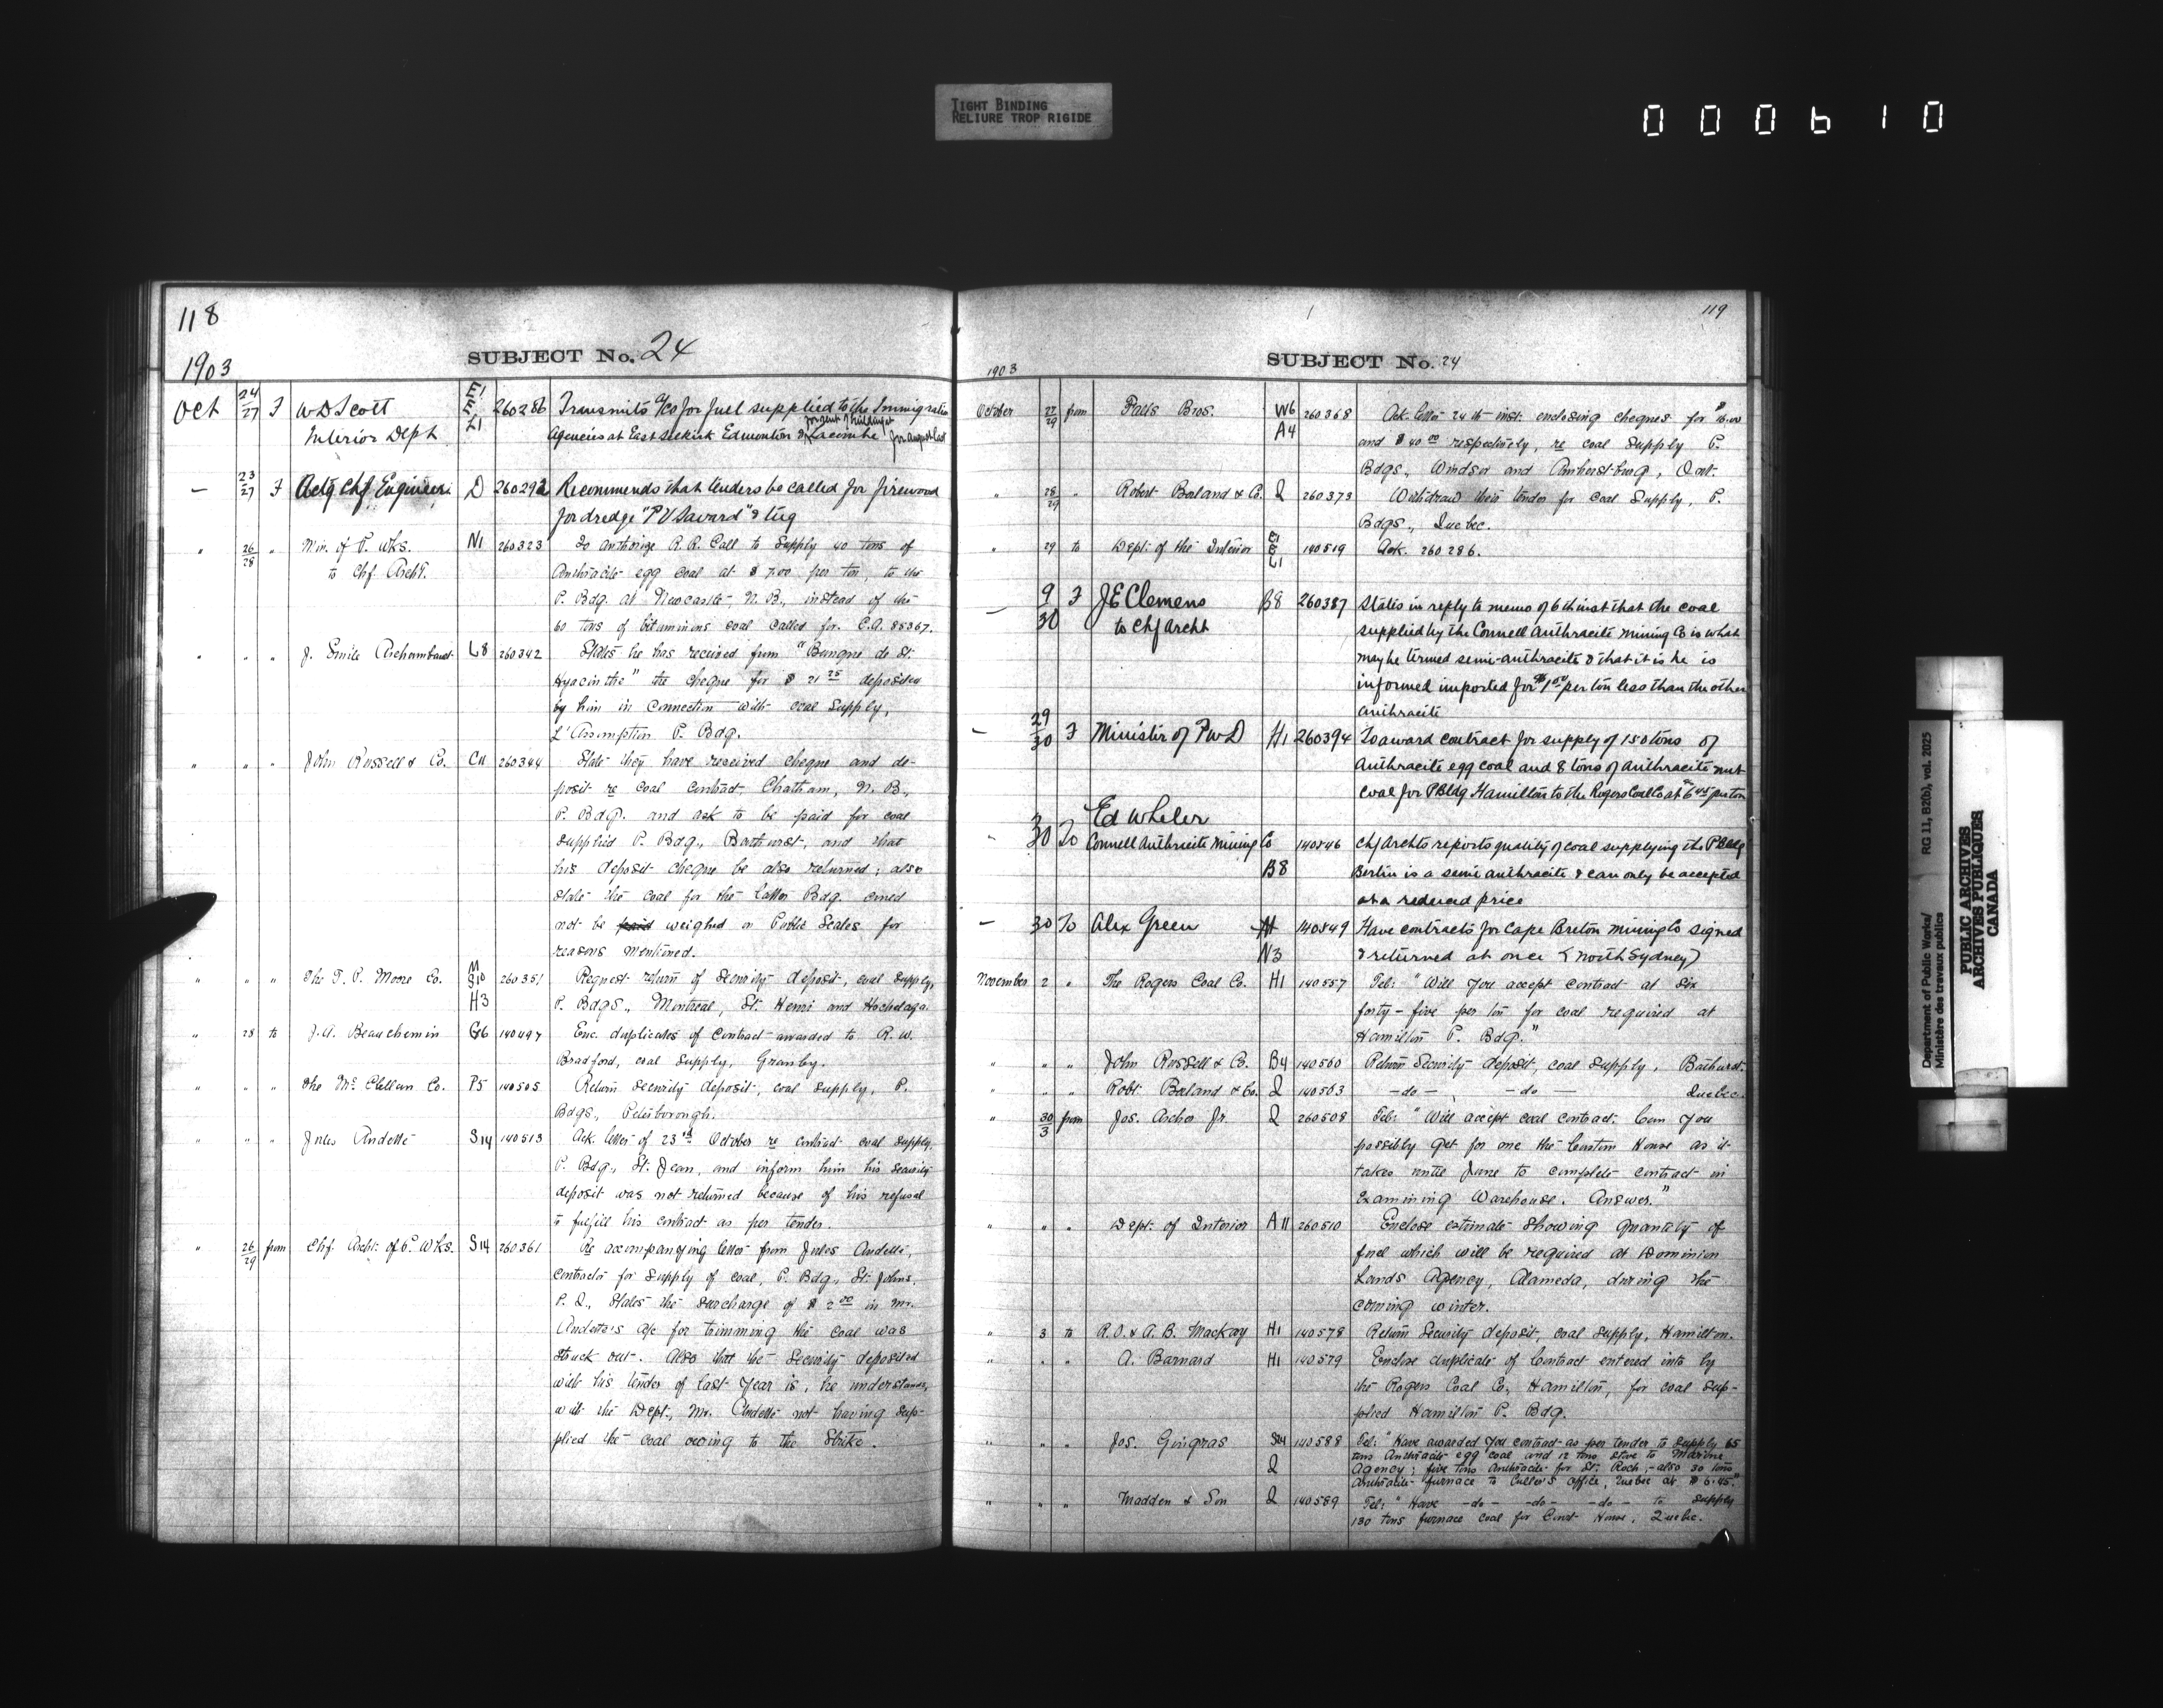 TIGHT BINDING
RELIURE TROP RIGIDE
000610
118
SUBJECT No. 24
1903
Oct 24/27 F W D Scott E1 260286 Transmits a/cs for fuel supplied to the Immigration
Interior Dept L1 Agencies at East Selkirk Edmonton & Lacombe for August last
— 23/27 F Actg Chf Engineer D 260292 Recommends that tenders be called for firewood
for dredge "P V Savard" & tug
" 26/28 " Min. of P. Wks. N1 260323 To authorize R. R. Call to supply 40 tons of
to Chf. Archt. Anthracite egg coal at $7.00 per ton, to the
P. Bdg. at Newcastle, N. B., instead of the
60 tons of bituminous coal called for. C.A. 85367.
" " " J. Emile Archambault L8 260342 States he has received from "Banque de St.
Hyacinthe" the cheque for $21 25 deposited
by him in connection with coal supply,
L'Assomption P. Bdg.
" " " John Russell & Co. C11 260344 State they have received cheque and de-
posit re coal contract, Chatham, N. B.,
P. Bdg. and ask to be paid for coal
supplied P. Bdg., Bathurst, and that
his deposit cheque be also returned; also
state the coal for the latter Bdg. could
not be paid weighed on Public Scales for
reasons mentioned.
" " " The T. P. Moore Co. M S10 260351 Request return of security deposit, coal supply,
H3 P. Bdgs., Montreal, St. Henri and Hochelaga.
" 28 to J. A. Beauchemin G6 140497 Enc. duplicates of contract awarded to R. W.
Bradford, coal supply, Granby.
" " " The McClellan Co. P5 140505 Return security deposit, coal supply, P.
Bdgs., Peterborough.
" " " Jules Andette S14 140513 Ack. letter of 23rd October re contract coal supply,
P. Bdg., St. Jean, and inform him his security
deposit was not returned because of his refusal
to fulfill his contract as per tender.
" 26/29 from Chf. Archt. of P. Wks. S14 260361 Re accompanying letter from Jules Andette,
contractor for supply of coal, P. Bdg., St. Johns,
P. Q., states the surcharge of $2 00 in Mr.
Andette's a/c for trimming the coal was
struck out. Also that the security deposited
with his tender of last year is, he understands,
with the Dept., Mr. Andette not having sup-
plied the coal owing to the Strike.
119
SUBJECT No. 24
1903
October 27/29 from Falls Bros. W6 260368 Ack. letter 24th inst. enclosing cheques for $16.00
A4 and $40 00 respectively, re coal supply P.
Bdgs., Windsor and Amherstburg, Ont.
" 28/29 " Robert Borland & Co. Q 260373 Withdraw their tender for coal supply, P.
Bdgs., Quebec.
" 29 to Dept. of the Interior L1 140519 Ack. 260286.
— 9/30 F J E Clemens B8 260387 States in reply to memo of 6th inst that the coal
to Chf Archt supplied by the Connell Anthracite Mining Co is what
may be termed semi-anthracite & that it is he is
informed imported for $1 50 per ton less than the other
anthracite
— 29/30 F Minister of P W D H1 260394 To award contract for supply of 150 tons of
Anthracite egg coal and 8 tons of Anthracite nut
coal for P Bldg Hamilton to the Rogers Coal Co at 6 45 per ton
Ed Wheler
" 30 To Connell Anthracite Mining Co 140546 Chf Archts reports quality of coal supplying the P Bldg
B8 Berlin is a semi anthracite & can only be accepted
at a reduced price
— 30 To Alex Green 140549 Have contracts for Cape Breton Mining Co signed
N3 & returned at once (North Sydney)
November 2 " The Rogers Coal Co. H1 140557 Tel: "Will you accept contract at six
forty-five per ton for coal required at
Hamilton P. Bdg."
" " " John Russell & Co. B4 140560 Return security deposit, coal supply, Bathurst.
" " " Robt. Borland & Co. Q 140563 — do — — do — Quebec.
" 30/3 from Jos. Archer Jr. Q 260508 Tel: "Will accept coal contract. Can you
possibly get for me the Custom House as it
takes until June to complete contract in
Examining Warehouse. Answer."
" " " Dept. of Interior A11 260510 Enclose estimate showing quantity of
fuel which will be required at Dominion
Lands Agency, Alameda, during the
coming winter.
" 3 to R. O. & A. B. Mackay H1 140578 Return security deposit, coal supply, Hamilton.
" " " A. Barnard H1 140579 Enclose duplicate of contract entered into by
the Rogers Coal Co., Hamilton, for coal sup-
plied Hamilton P. Bdg.
" " " Jos. Gingras 140588 Tel: "Have awarded you contract as per tender to supply 65
tons Anthracite egg coal and 12 tons stove to Marine
Q Agency; five tons Anthracite for St. Roch, - also 30 tons
anthracite furnace to Culler's office, Quebec at $6.45."
" " " Madden & Son Q 140589 Tel: "Have — do — — do — — do — to supply
130 tons furnace coal for Court House, Quebec.
Department of Public Works/ RG 11, B2(b), vol. 2025
Ministère des travaux publics
PUBLIC ARCHIVES
ARCHIVES PUBLIQUES
CANADA